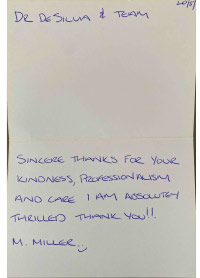 20/5/
DR DE SILVA & TEAM
SINCERE THANKS FOR YOUR
KINDNESS, PROFESSIONALISM
AND CARE I AM ABSOLUTEY
THRILLED THANK YOU!!.
M. MILLER